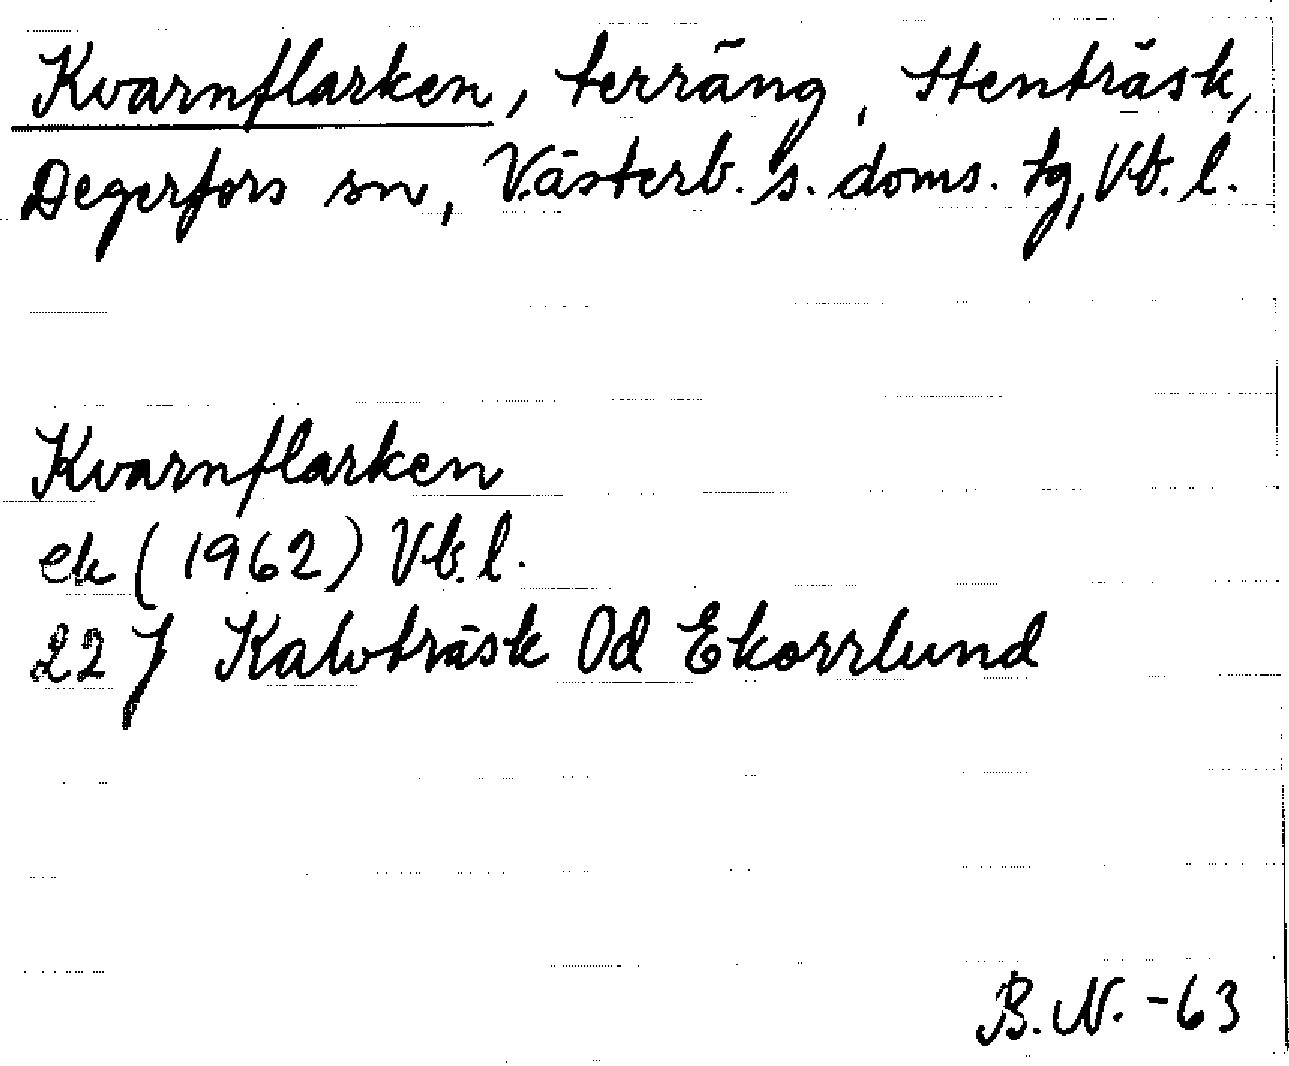 Kvarnflarken, terräng, Stenträsk,
Degerfors sn, Västerb. s. doms. tg, Vb. l.
Kvarnflarken
ek (1962) Vb. l.
22 J Kalvträsk 0d Ekorrlund
B. N. -63